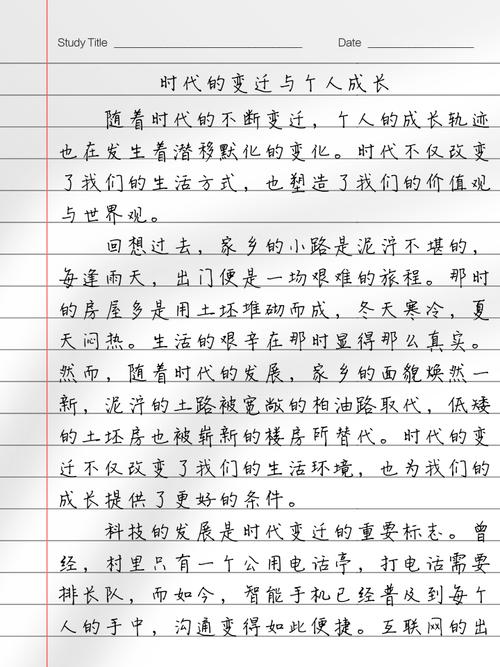 Study Title Date
时代的变迁与个人成长
随着时代的不断变迁，个人的成长轨迹
也在发生着潜移默化的变化。时代不仅改变
了我们的生活方式，也塑造了我们的价值观
与世界观。
回想过去，家乡的小路是泥泞不堪的，
每逢雨天，出门便是一场艰难的旅程。那时
的房屋多是用土坯堆砌而成，冬天寒冷，夏
天闷热。生活的艰辛在那时显得那么真实。
然而，随着时代的发展，家乡的面貌焕然一
新，泥泞的土路被宽敞的柏油路取代，低矮
的土坯房也被崭新的楼房所替代。时代的变
迁不仅改变了我们的生活环境，也为我们的
成长提供了更好的条件。
科技的发展是时代变迁的重要标志。曾
经，村里只有一个公用电话亭，打电话需要
排长队，而如今，智能手机已经普及到每个
人的手中，沟通变得如此便捷。互联网的出